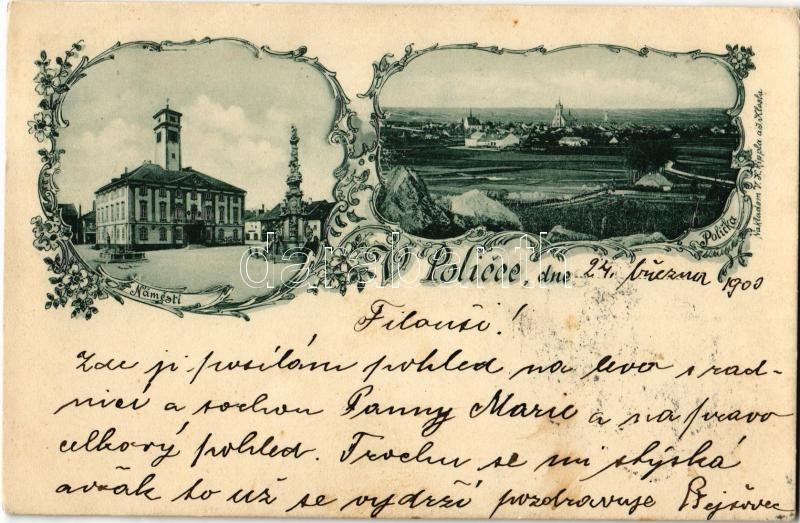 Náměstí
Polička
V Poličce, dne 24. března 1900
Filouši!
Zde ji posílám pohled na levo s rad-
nicí a sochou Panny Marie a na pravo
celkový pohled. Trochu se mi stýská
avšak to už se vydrží pozdravuje
darabanth